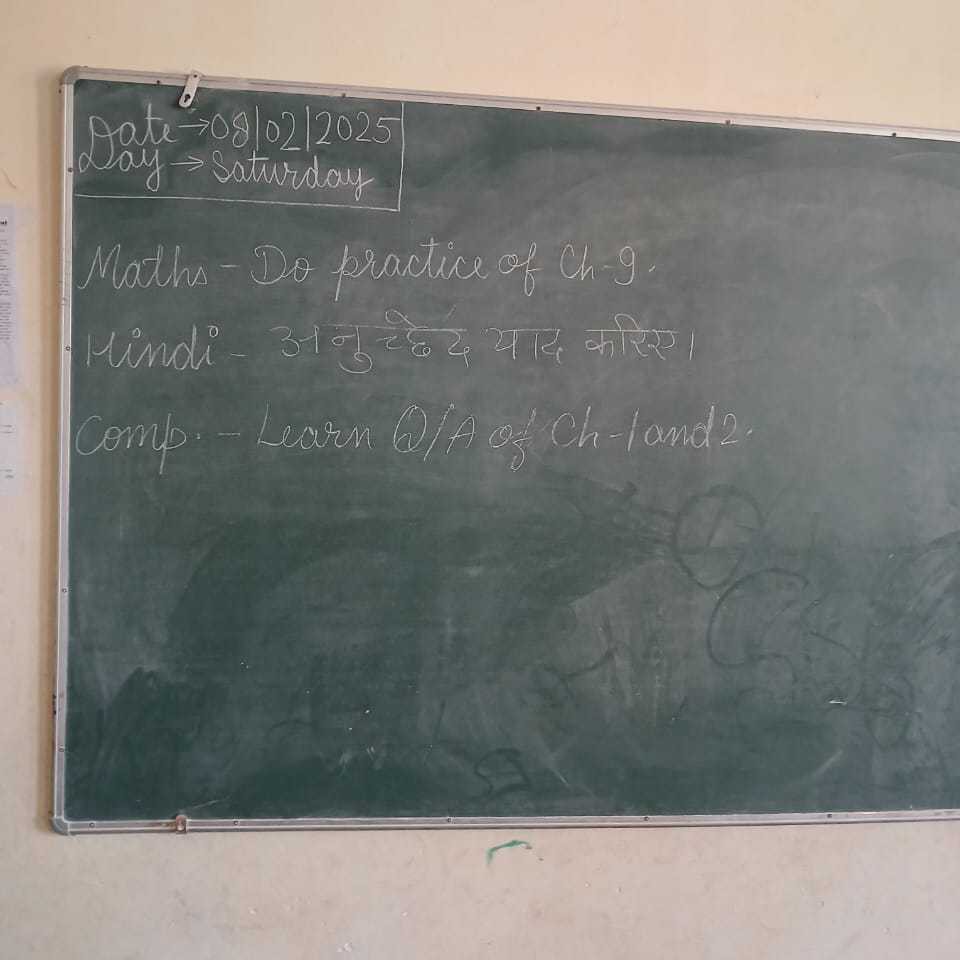 Date → 08/02/2025
Day → Saturday
Maths - Do practice of Ch-9.
Hindi - अनुच्छेद याद करिए।
Comp. - Learn Q/A of Ch-1 and 2.